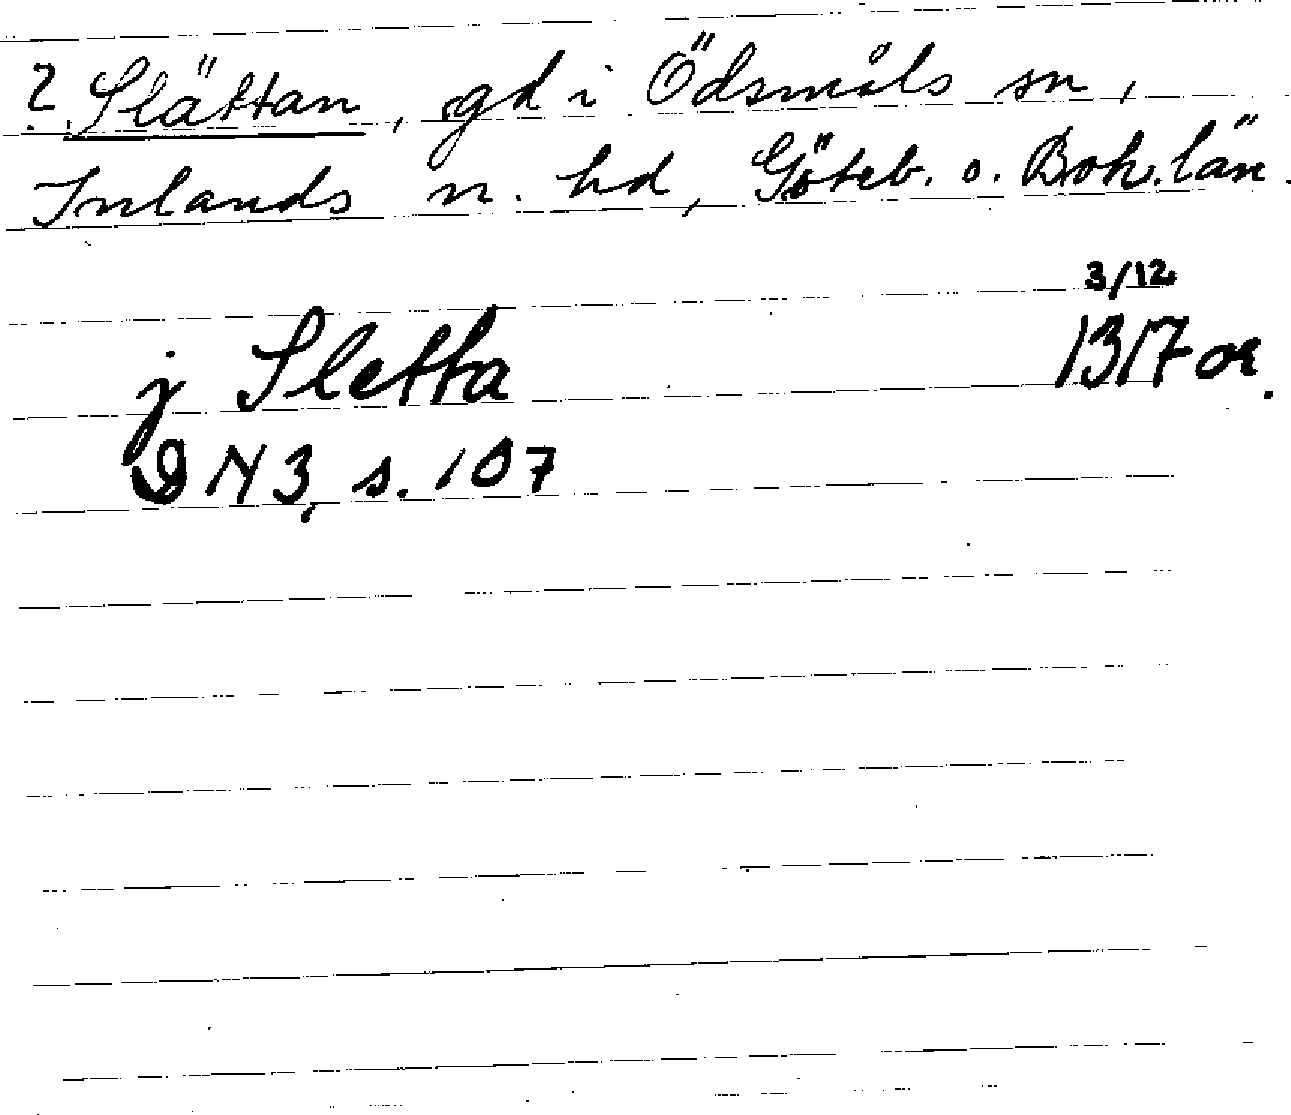 ? Slättan, gd i Ödsmåls sn,
Inlands n. hd, Göteb. o. Boh. län.
3/12
j Sletta 1317 or.
DN 3, s. 107